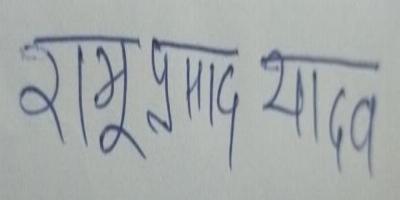 रामू प्रसाद यादव